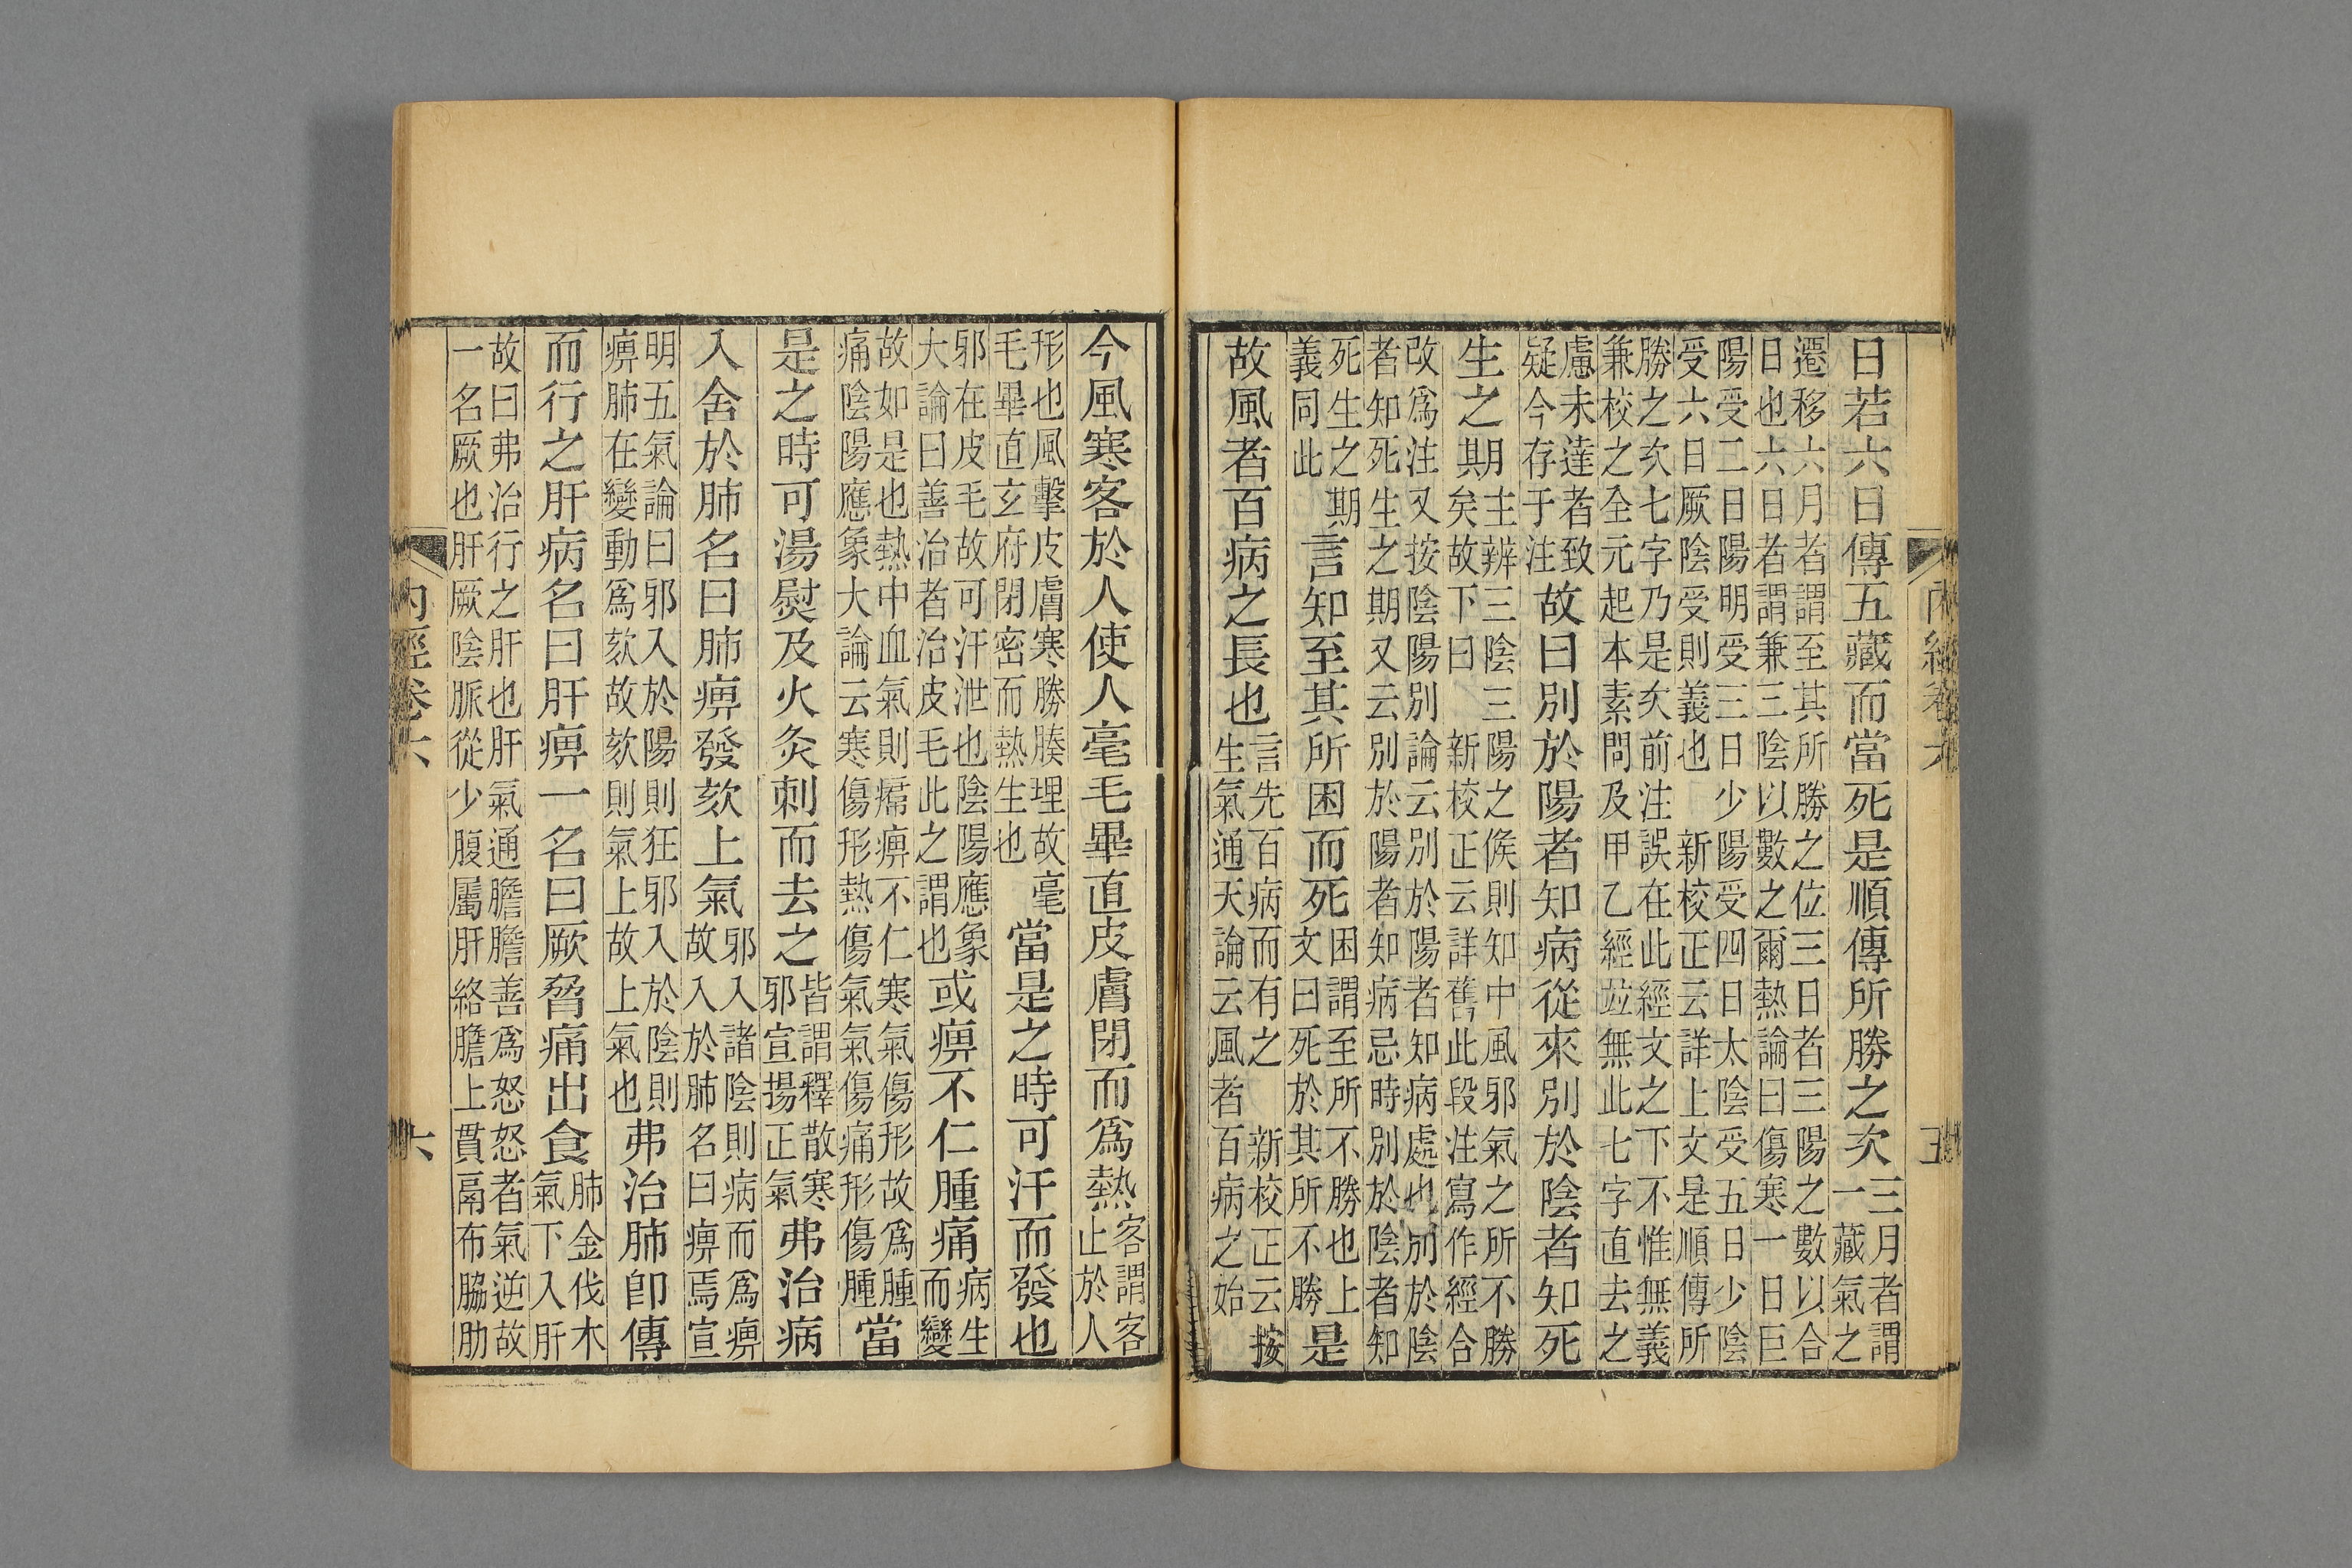 日若六日傳五藏而當死是順傳所勝之次三月者謂一藏氣之
遷移六月者謂至其所勝之位三日者三陽之數以合
日也六日者謂兼三陰以數之爾熱論曰傷寒一日巨
陽受二日陽明受三日少陽受四日太陰受五日少陰
受六日厥陰受則義也 新校正云詳上文是順傳所
勝之次七字乃是次前注誤在此經文之下不惟無義
兼校之全元起本素問及甲乙經並無此七字直去之
慮未達者致
疑今存于注故曰別於陽者知病從來別於陰者知死
生之期主辨三陰三陽之候則知中風邪氣之所不勝
矣故下曰 新校正云詳舊此段注寫作經合
改爲注又按陰陽別論云別於陽者知病處也別於陰
者知死生之期又云別於陽者知病忌時別於陰者知
死生之期
義同此言知至其所困而死困謂至所不勝也上
文曰死於其所不勝是
故風者百病之長也言先百病而有之 新校正云按
生氣通天論云風者百病之始
今風寒客於人使人毫毛畢直皮膚閉而爲熱客謂客
止於人
形也風擊皮膚寒勝腠理故毫
毛畢直玄府閉密而熱生也當是之時可汗而發也
邪在皮毛故可汗泄也陰陽應象
大論曰善治者治皮毛此之謂也或痹不仁腫痛病生
而變
故如是也熱中血氣則㿏痹不仁寒氣傷形故爲腫
痛陰陽應象大論云寒傷形熱傷氣氣傷痛形傷腫當
是之時可湯熨及火灸刺而去之皆謂釋散寒
邪宣揚正氣弗治病
入舍於肺名曰肺痹發欬上氣邪入諸陰則病而爲痹
故入於肺名曰痹焉宣
明五氣論曰邪入於陽則狂邪入於陰則
痹肺在變動爲欬故欬則氣上故上氣也弗治肺卽傳
而行之肝病名曰肝痹一名曰厥脅痛出食肺金伐木
氣下入肝
故曰弗治行之肝也肝氣通膽膽善爲怒怒者氣逆故
一名厥也肝厥陰脈從少腹屬肝絡膽上貫鬲布脇肋
內經卷六
五
內經卷六
六